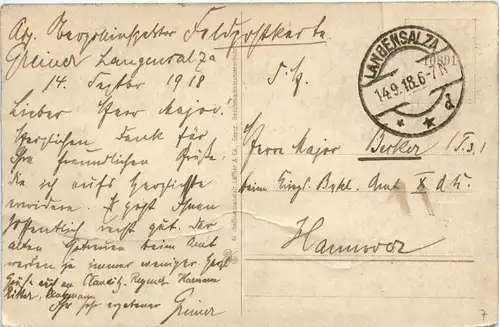 Feldpostkarte
Greiner Langensalza
14. Septbr 1918
Lieber Herr Major.
Herzlichen Dank für
Ihre freundlichen Grüße.
die ich aufs Herzlichste
erwidere. Es geht Ihnen
hoffentlich recht gut. Der
alten Getreuen beim Amt
werden ja immer weniger. Herzl.
Grüße auch an Regmt. Hermann
Ritter,
Ihr sehr ergebener
Greiner
LANGENSALZA
14.9.18.6-7N
d
Herrn Major Becker
beim Kingl. Bzkl. Amt X A.K.
Hannover
7